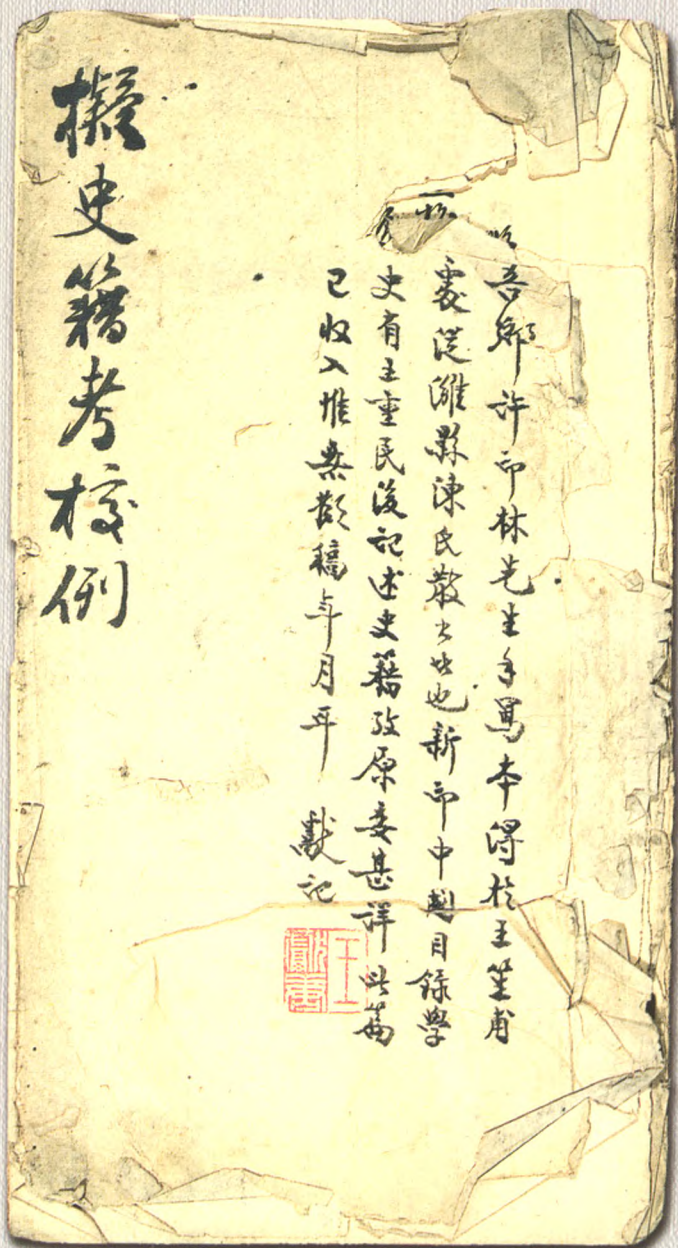 此吾鄉許印林先生手寫本得於王笙甫
處從濰縣陳氏散出者也新印中國目錄學
史有王重民後記述史籍攷原委甚詳此篇
已收入惟無稿年月耳 獻記
王獻唐
擬史籍考校例